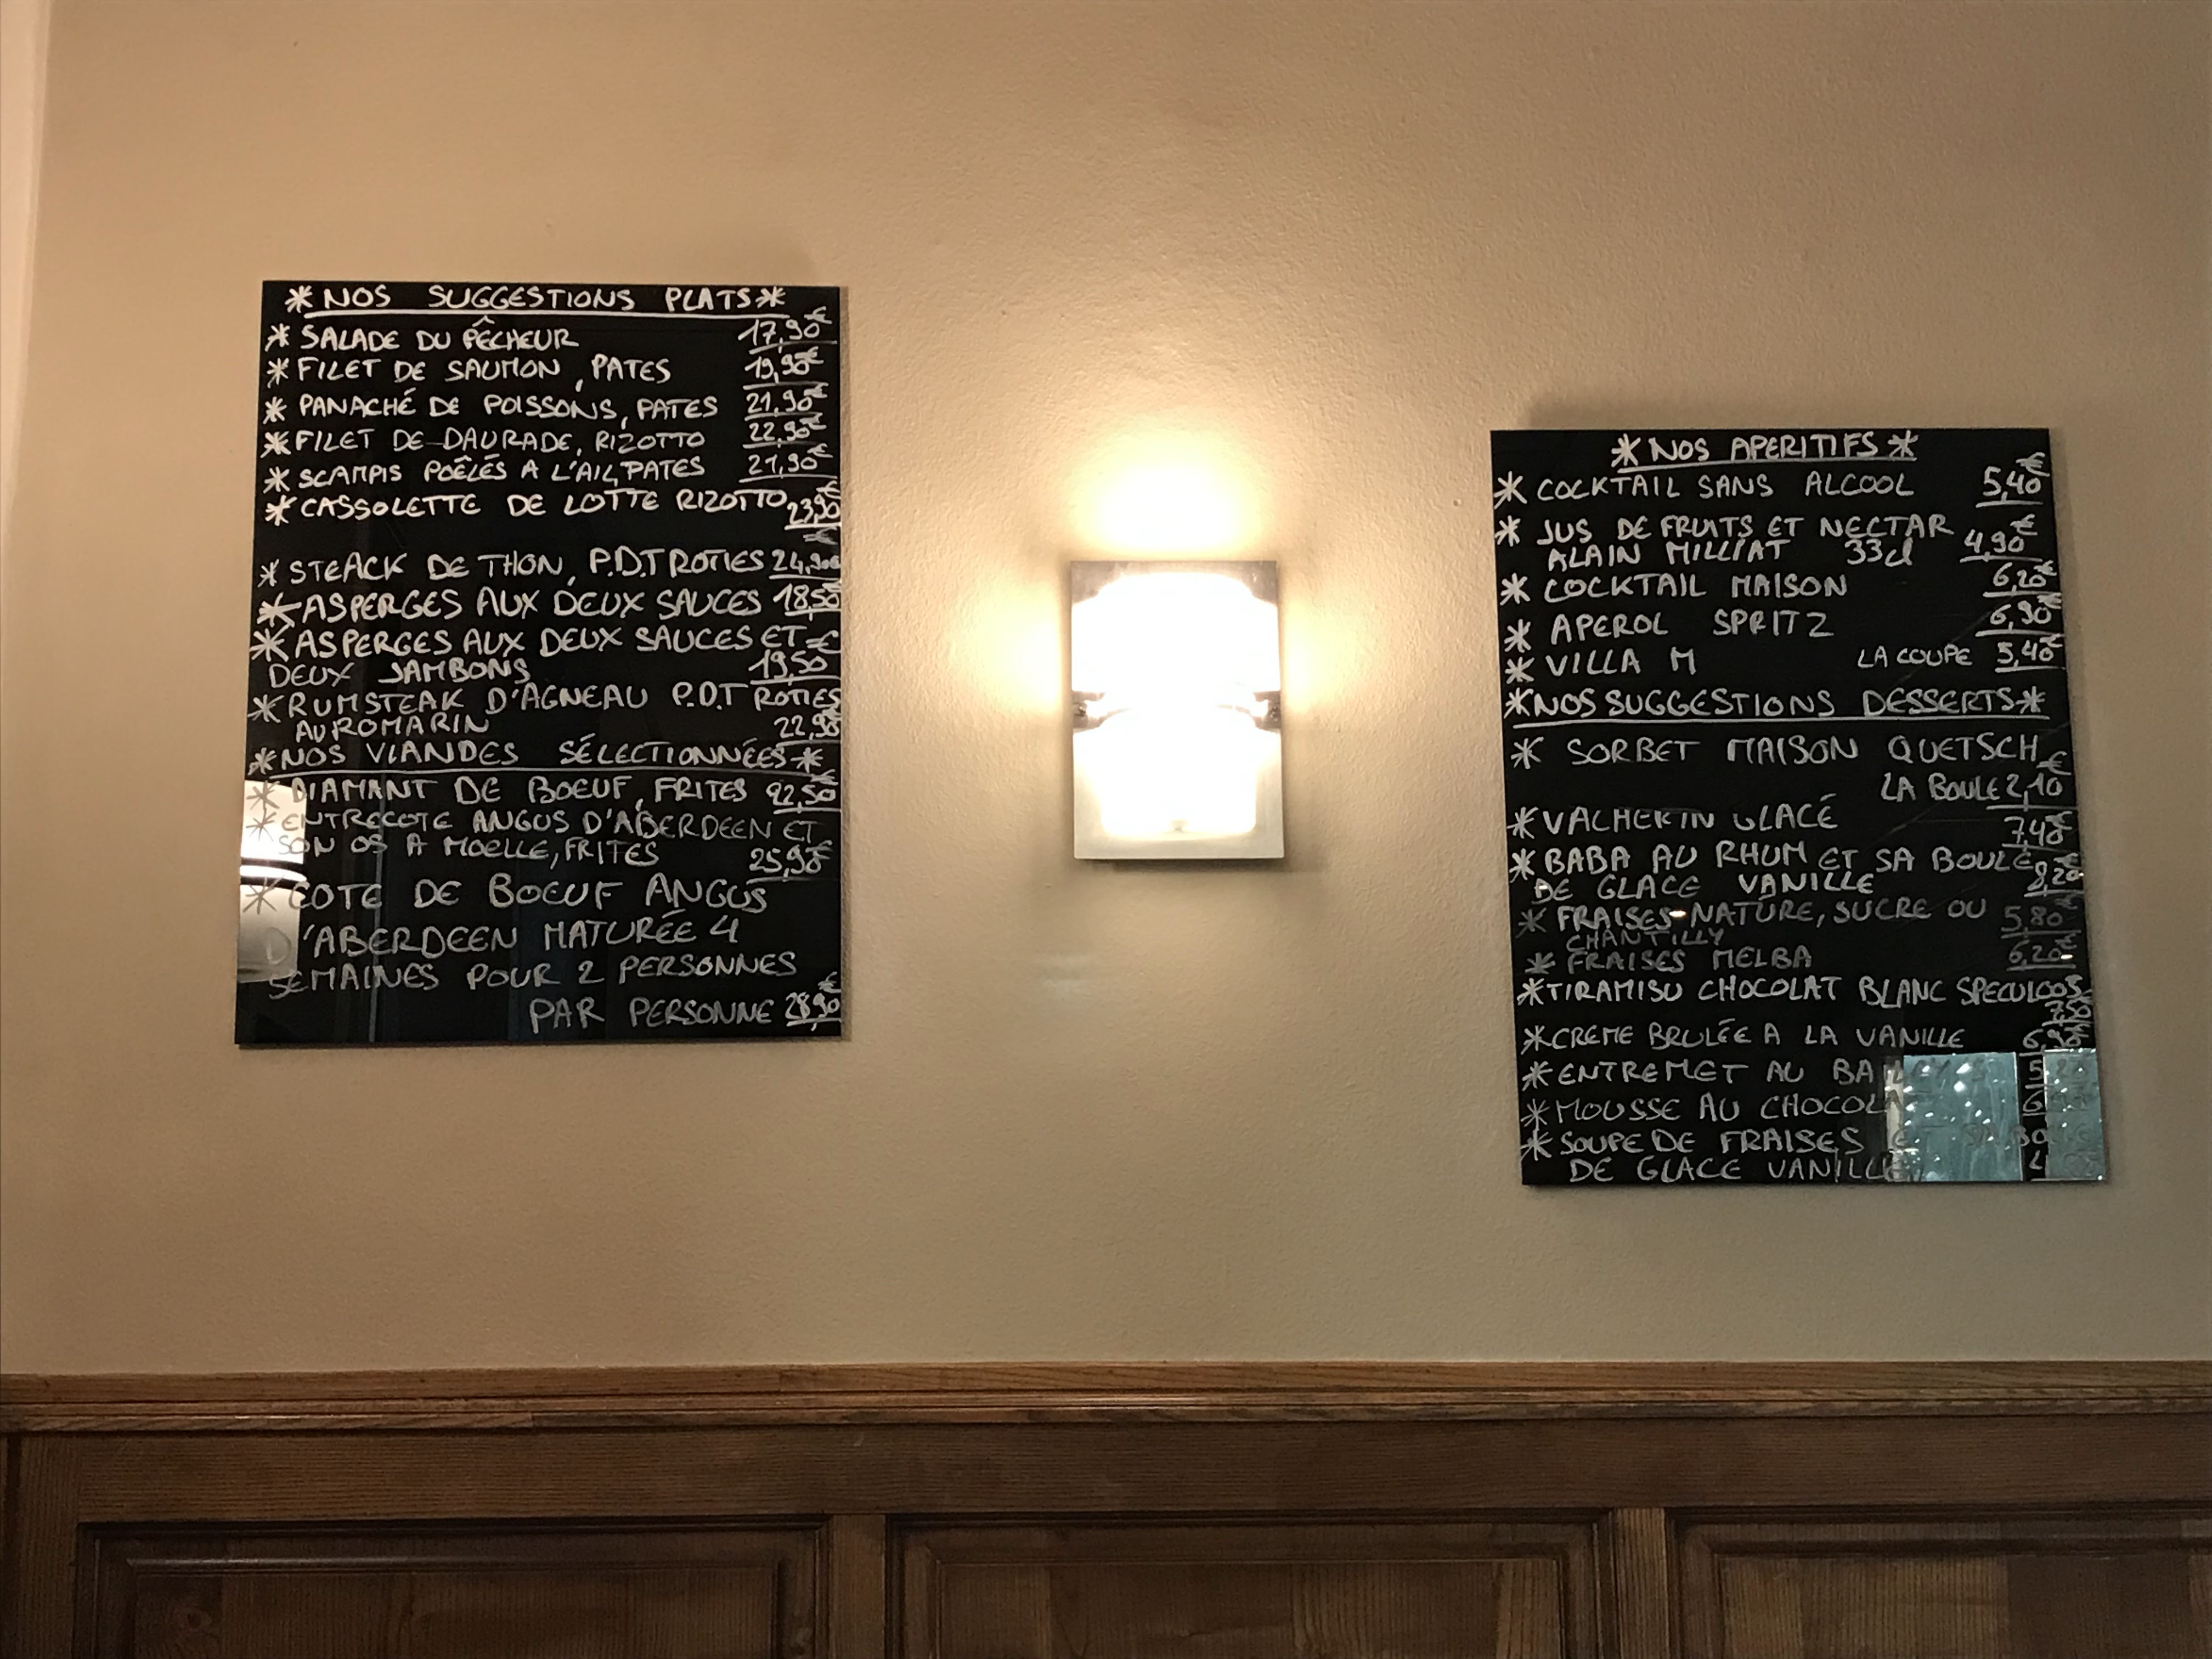 *NOS SUGGESTIONS PLATS*
* SALADE DU PÊCHEUR 17,90€
* FILET DE SAUMON, PATES 19,90€
* PANACHÉ DE POISSONS, PATES 21,90€
* FILET DE DAURADE, RIZOTTO 22,90€
* SCAMPIS POÊLÉS A L'AIL, PATES 21,90€
* CASSOLETTE DE LOTTE RIZOTTO 23,90€
* STEACK DE THON, P.D.T ROTIES 24,90€
* ASPERGES AUX DEUX SAUCES 18,50
* ASPERGES AUX DEUX SAUCES ET
DEUX JAMBONS 19,50€
* RUMSTEAK D'AGNEAU P.D.T ROTIES
AU ROMARIN 22,90
*NOS VIANDES SÉLECTIONNÉES*
* DIAMANT DE BOEUF, FRITES 22,50€
* ENTRECOTE ANGUS D'ABERDEEN ET
SON OS A MOELLE, FRITES 25,90€
* COTE DE BOEUF ANGUS
D'ABERDEEN MATURÉE 4
SEMAINES POUR 2 PERSONNES
PAR PERSONNE 28,90€
*NOS APERITIFS*
* COCKTAIL SANS ALCOOL 5,40€
* JUS DE FRUITS ET NECTAR
ALAIN MILLIAT 33cl 4,90€
* COCKTAIL MAISON 6,20€
* APEROL SPRITZ 6,90€
* VILLA M LA COUPE 5,40€
*NOS SUGGESTIONS DESSERTS*
* SORBET MAISON QUETSCH
LA BOULE 2,10€
* VACHERIN GLACÉ 7,40€
* BABA AU RHUM ET SA BOULE
DE GLACE VANILLE 8,20€
* FRAISES NATURE, SUCRE OU 5,80€
CHANTILLY
* FRAISES MELBA 6,20€
*TIRAMISU CHOCOLAT BLANC SPECULOOS
*CREME BRULÉE A LA VANILLE
*ENTREMET AU
*MOUSSE AU
*SOUPE DE FRAISES
DE GLACE VANILLE